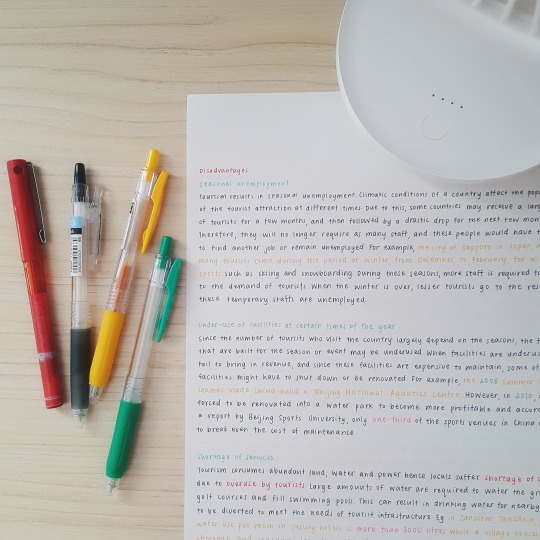 Disadvantages
Seasonal unemployment
Tourism results in seasonal unemployment. Climatic conditions of a country affect the
of the tourist attraction at different times. Due to this, some countries may receive a
of tourists for a few months, and then followed by a drastic drop for the next few
Therefore, they will no longer require as many staff, and these people would have
to find another job or remain unemployed. For example, the city of Sapporo in Japan,
many tourists come during the period of winter, from December to February, for
sports such as skiing and snowboarding. During these seasons, more staff is required
to the demand of tourists. When the winter is over, lesser tourists go to the
these temporary staffs are unemployed.
Under-use of facilities at certain times of the year
Since the number of tourists who visit the country largely depend on the seasons, the
that are built for the season or event may be underused. When facilities are
fail to bring in revenue, and since these facilities are expensive to maintain, some of
facilities might have to shut down or be renovated. For example, the 2008 Summer
Games made China build a Beijing National Aquatics Centre. However, in 2010,
forced to be renovated into a water park to become more profitable and
a report by Beijing Sports University, only one-third of the sports venues in China
to break even the cost of maintenance.
Shortage of services
Tourism consumes abundant land, water and power hence locals suffer shortage of
due to overuse by tourists. Large amounts of water are required to water the
golf courses and fill swimming pools. This can result in drinking water for nearby
to be diverted to meet the needs of tourist infrastructure. Eg in Zanzibar Tanzania
water use per room in luxury hotels is more than 3000 litres while a village